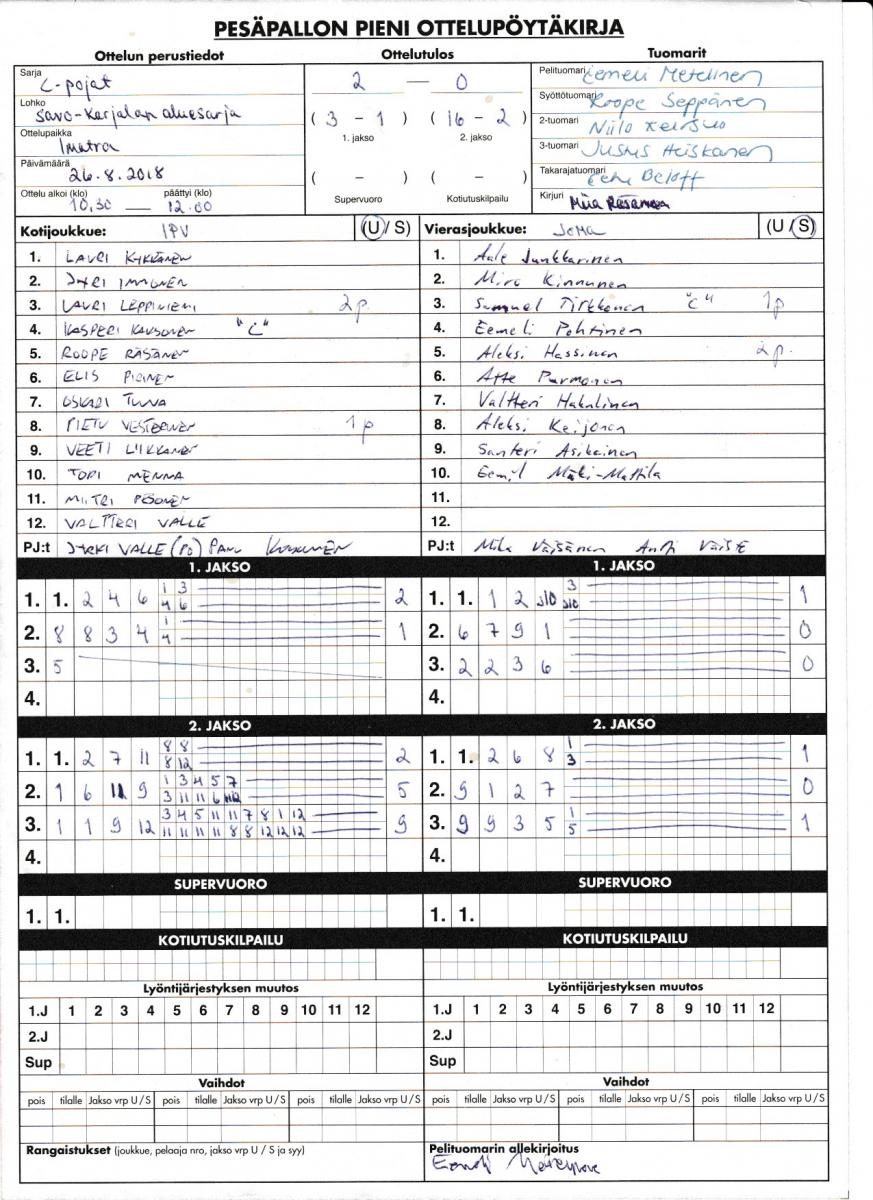 PESÄPALLON PIENI OTTELUPÖYTÄKIRJA
Ottelun perustiedot Ottelutulos Tuomarit
Sarja C-pojat
Lohko Savo-Karjalan aluesarja
Ottelupaikka Imatra
Päivämäärä 26.8.2018
Ottelu alkoi (klo) päättyi (klo)
10.30 — 12.00
2 — 0
( 3 - 1 ) ( 16 - 2 )
1. jakso 2. jakso
( – ) ( – )
Supervuoro Kotiutuskilpailu
Pelituomari Eemeli
Syöttötuomari Roope Seppänen
2-tuomari Niilo
3-tuomari Justus Heiskanen
Takarajatuomari Eetu Beloff
Kirjuri Miia Räsänen
Kotijoukkue: IPV (U / S) Vierasjoukkue: JoMa (U / S)
1. LAURI KYKKÄNEN
2. JYRI IMMONEN
3. LAURI LEPPINIEMI 2p.
4. KASPERI "C"
5. ROOPE RÄSÄNEN
6. ELIS PIRINEN
7. OSKARI TUUVA
8. PIETU VESTERINEN 1p
9. VEETI LIIKKANEN
10. TOPI MENNA
11. MIITRI PÖÖNEN
12. VALTTERI VALLE
PJ:t JYRKI VALLE (PO) PANU
1. Aale Junkkarinen
2. Miro Kinnunen
3. Samuel Tirkkonen "C" 1p
4. Eemeli Pohtinen
5. Aleksi Hassinen 2p.
6. Atte Purmonen
7. Valtteri Hakulinen
8. Aleksi Keijonen
9. Santeri Asikainen
10. Eemil Mäki-Mattila
11.
12.
PJ:t Mika Väisänen Antti
1. JAKSO 1. JAKSO
1. 1. 2 4 6 1 3 2
4 6
2. 8 8 3 4 1 1
4
3. 5
4.
1. 1. 1 2 J10 3 1
J10
2. 6 7 9 1 0
3. 2 2 3 6 0
4.
2. JAKSO 2. JAKSO
1. 1. 2 7 11 8 8 2
8 12
2. 1 6 11 9 1 3 4 5 7 5
3 11 11 6 12
3. 1 1 9 12 3 4 5 11 11 7 8 1 12 9
11 11 11 11 8 8 12 12 12
4.
1. 1. 2 6 8 1 1
3
2. 9 1 2 7 0
3. 9 9 3 5 1 1
5
4.
SUPERVUORO SUPERVUORO
1. 1. 1. 1.
KOTIUTUSKILPAILU KOTIUTUSKILPAILU
Lyöntijärjestyksen muutos Lyöntijärjestyksen muutos
1.J 1 2 3 4 5 6 7 8 9 10 11 12 1.J 1 2 3 4 5 6 7 8 9 10 11 12
2.J 2.J
Sup Sup
Vaihdot Vaihdot
pois tilalle Jakso vrp U / S pois tilalle Jakso vrp U / S pois tilalle Jakso vrp U / S pois tilalle Jakso vrp U / S pois tilalle Jakso vrp U / S pois tilalle Jakso vrp U / S
Rangaistukset (joukkue, pelaaja nro, jakso vrp U / S ja syy) Pelituomarin allekirjoitus